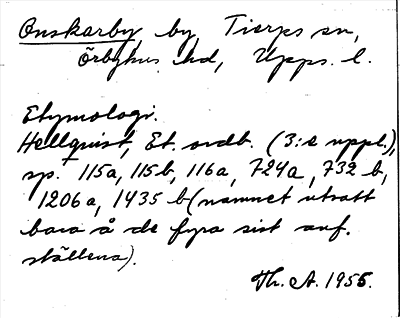 Onskarby by, Tierps sn,
Örbyhus hd, Upps. l.
Etymologi.
Hellquist, Et. ordb. (3:e uppl.),
sp. 115a, 115b, 116a, 724a, 732 b,
1206a, 1435 b (namnet utsatt
bara å de fyra sist anf.
ställena).
Th. A. 1955.